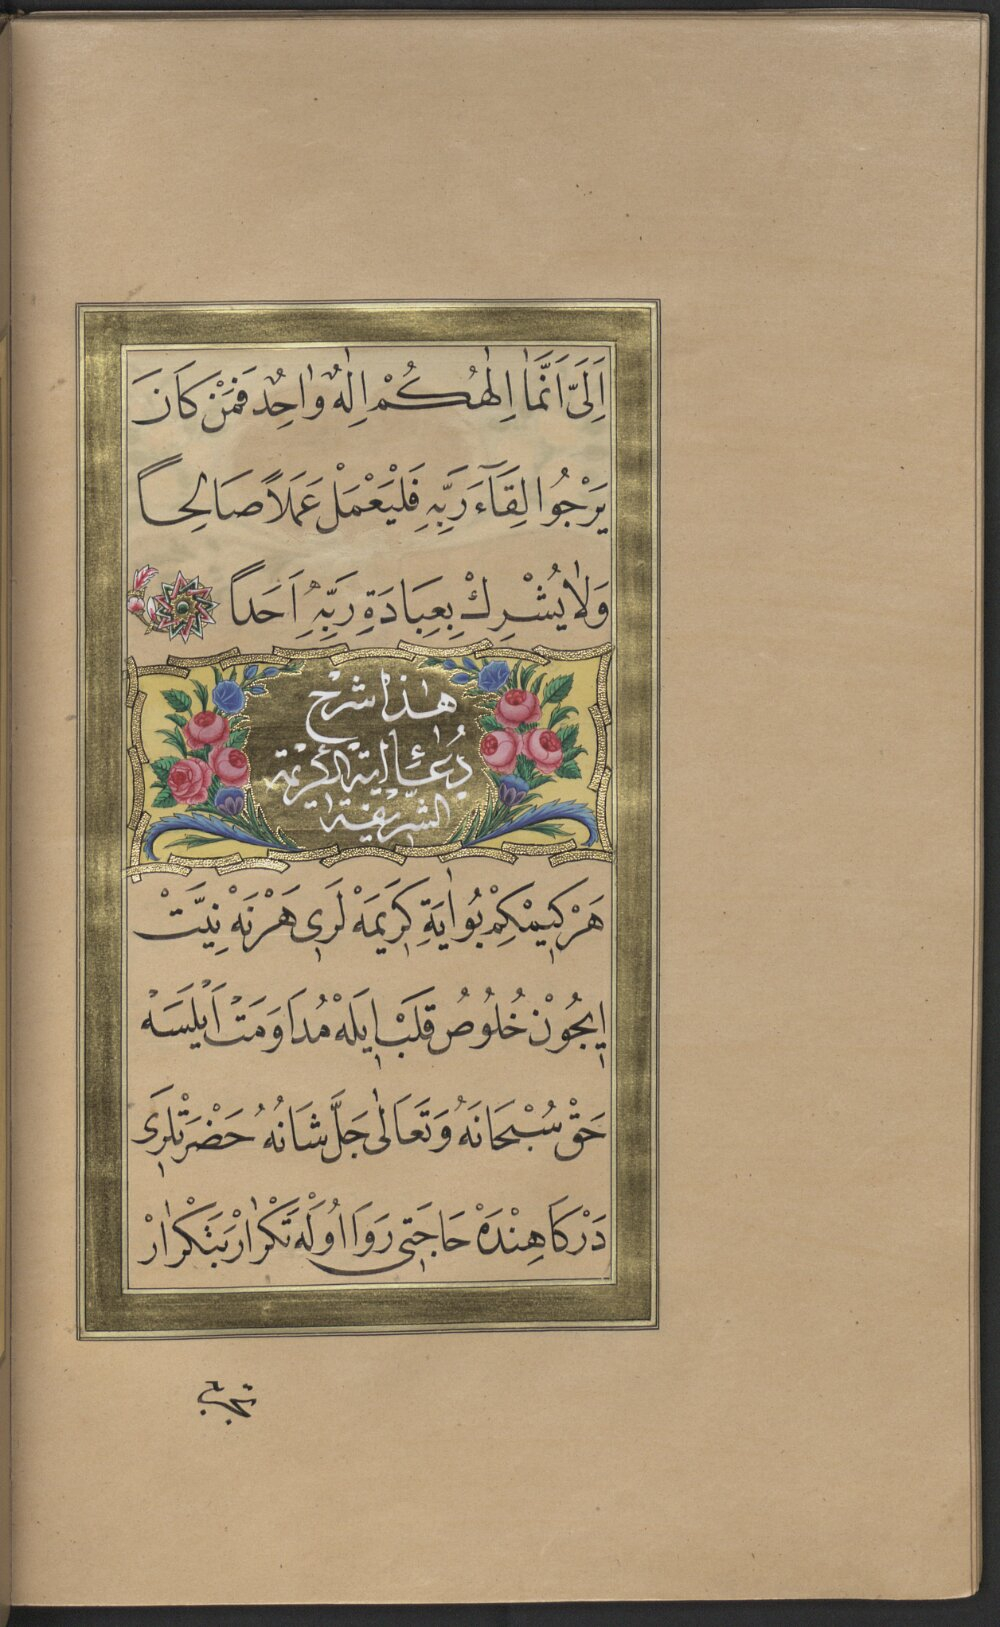 اِلَيَّ اَنَّمَٓا اِلٰهُكُمْ اِلٰهٌ وٰاحِدٌ فَمَنْ كَانَ
يَرْجُوا لِقَٓاءَ رَبِّهِ فَلْيَعْمَلْ عَمَلًا صَالِحاً
وَلاٰ يُشْرِكْ بِعِبَادَةِ رَبِّهِ اَحَداً
هٰذٰا شَرْحِ
دُعَٓائِ اٰيَةِ الْكَرِيْمَةِ
الشَّرِيْفَةِ
هَرْ كِيمْكِمْ بُو اٰيَةِ كَرِيمَهْ لَرِى هَرْ نَهْ نِيَّتْ
اِيچُونْ خُلُوصُ قَلْبْ اِيلَهْ مُدَاوَمَتْ اَيْلَسَهْ
حَقْ سُبْحَانَهُ وَتَعَالٰى جَلَّ شَانُهُ حَضْرَتْلَرِى
دَرْكَاهِنْدَهْ حَاجَتِى رَوَا اُولَهْ تَكْرٰارْ بَتَكْرٰارْ